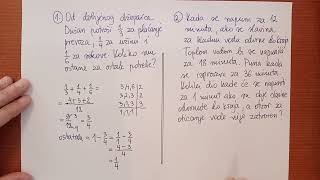 1. Od dobijenog džeparca
Dušan potroši 1/3 za plaćanje
prevoza, 1/4 za užinu i
1/6 za sokove. Koliko mu
ostane za ostale potrebe?
1/3 + 1/4 + 1/6 =
= (4+3+2)/12
= 9/12 = 3/4
ostatak = 1 - 3/4 = 1/1 - 3/4
= (4-3)/4
= 1/4
3,4,6 | 2
3,2,3 | 2
3,1,3 | 3
1,1,1
2. Kada se napuni za 12
minuta, ako se slavina
za hladnu vodu odvrne do kraja.
Toplom vodom bi se napunila
za 18 minuta. Puna kada
se isprazni za 36 minuta.
Koliki dio kade će se napuniti
za 1 minut ako se obje slavine
odvrnute do kraja, a otvor za
oticanje vode nije zatvoren?